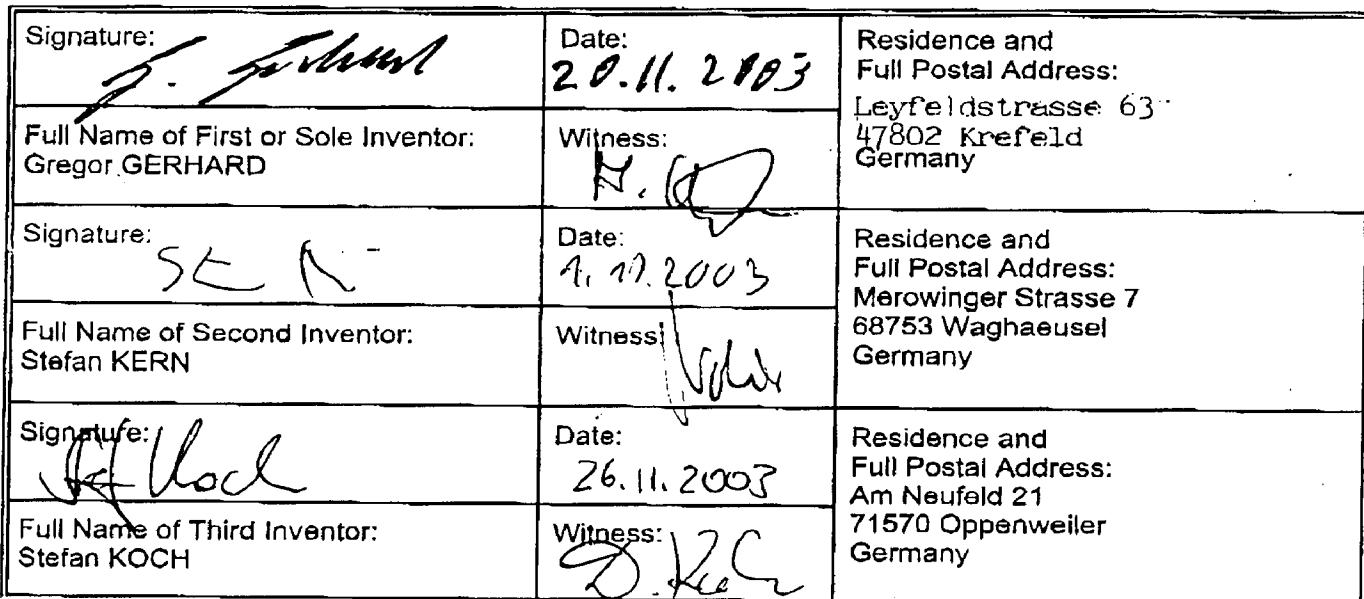 Signature:
Date:
20.11.2003
Residence and
Full Postal Address:
Leyfeldstrasse 63
47802 Krefeld
Germany
Full Name of First or Sole Inventor:
Gregor GERHARD
Witness:
Signature:
Date:
1.11.2003
Residence and
Full Postal Address:
Merowinger Strasse 7
68753 Waghaeusel
Germany
Full Name of Second Inventor:
Stefan KERN
Witness:
Signature:
Koch
Date:
26.11.2003
Residence and
Full Postal Address:
Am Neufeld 21
71570 Oppenweiler
Germany
Full Name of Third Inventor:
Stefan KOCH
Witness: